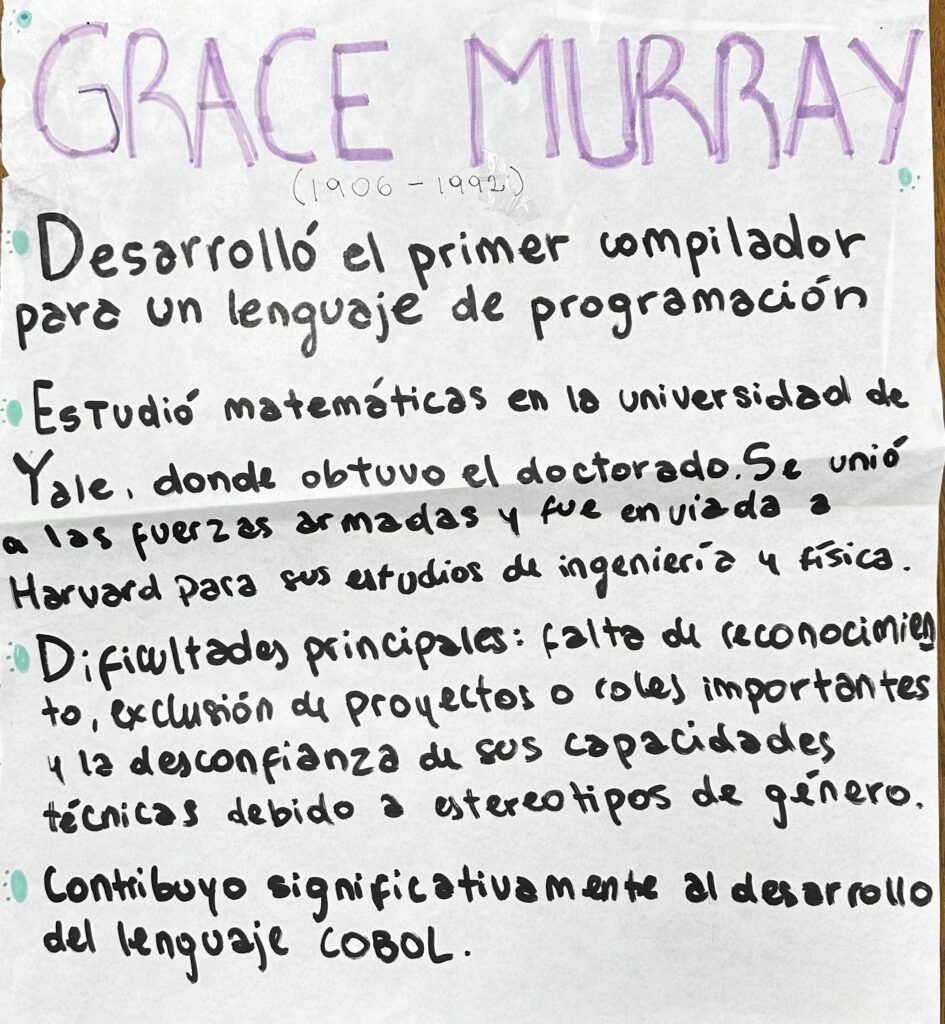 GRACE MURRAY
(1906-1992)
Desarrolló el primer compilador
para un lenguaje de programación
Estudió matemáticas en la universidad de
Yale, donde obtuvo el doctorado. Se unió
a las fuerzas armadas y fue enviada a
Harvard para sus estudios de ingeniería y física.
Dificultades principales: falta de reconocimien
to, exclusión de proyectos o roles importantes
y la desconfianza de sus capacidades
técnicas debido a estereotipos de género.
Contribuyo significativamente al desarrollo
del lenguaje COBOL.